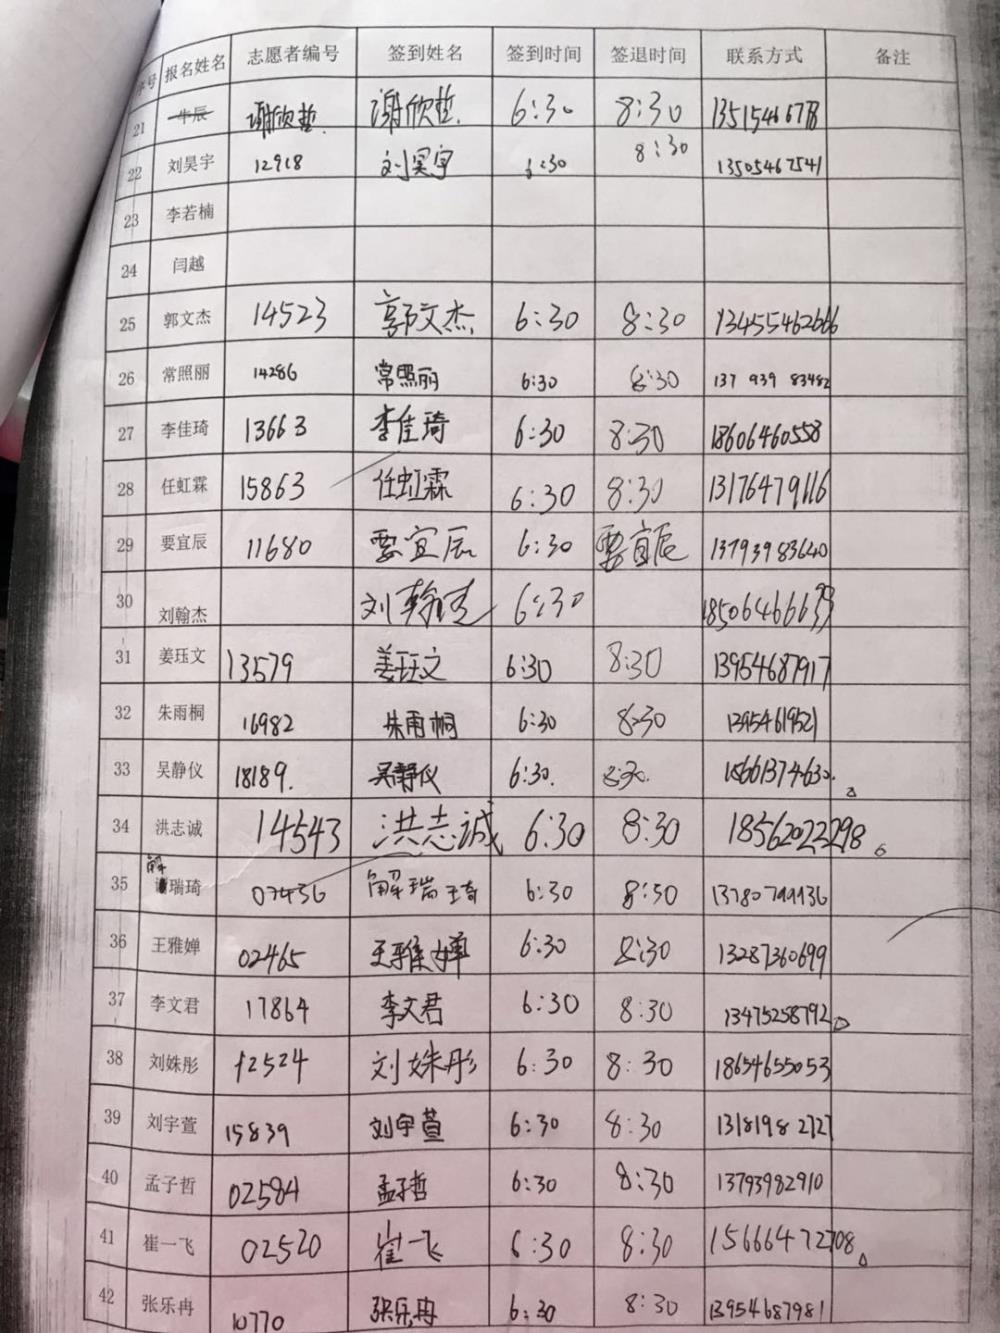 序号 报名姓名 志愿者编号 签到姓名 签到时间 签退时间 联系方式 备注
21 牛辰 谢欣哲 谢欣哲 6:30 8:30
22 刘昊宇 12918 刘昊宇 6:30 8:30 13505467541
23 李若楠
24 闫越
25 郭文杰 14523 郭文杰 6:30 8:30 13455462666
26 常照丽 14286 常照丽 6:30 8:30 137 939 83482
27 李佳琦 13663 李佳琦 6:30 8:30 18606460558
28 任虹霖 15863 任虹霖 6:30 8:30 13176479116
29 要宜辰 11680 要宜辰 6:30 要宜辰 13793983640
30 刘翰杰 刘翰杰 6:30
31 姜珏文 13579 姜珏文 6:30 8:30 13954687917
32 朱雨桐 16982 朱雨桐 6:30 8:30 13954619521
33 吴静仪 18189. 吴静仪 6:30. 8:30. 15661374630.
34 洪志诚 14543 洪志诚 6:30 8:30 18562022298
35 解瑞琦 07436 解瑞琦 6:30 8:30
36 王雅婵 02465 王雅婵 6:30 8:30 13287360699
37 李文君 17864 李文君 6:30 8:30 13475258792
38 刘姝彤 12524 刘姝彤 6:30 8:30 18654655053
39 刘宇萱 15839 刘宇萱 6:30 8:30 13181982727
40 孟子哲 02584 孟子哲 6:30 8:30 13793982910
41 崔一飞 02520 崔一飞 6:30 8:30 15666472708
42 张乐冉 10770 张乐冉 6:30 8:30 13954687981